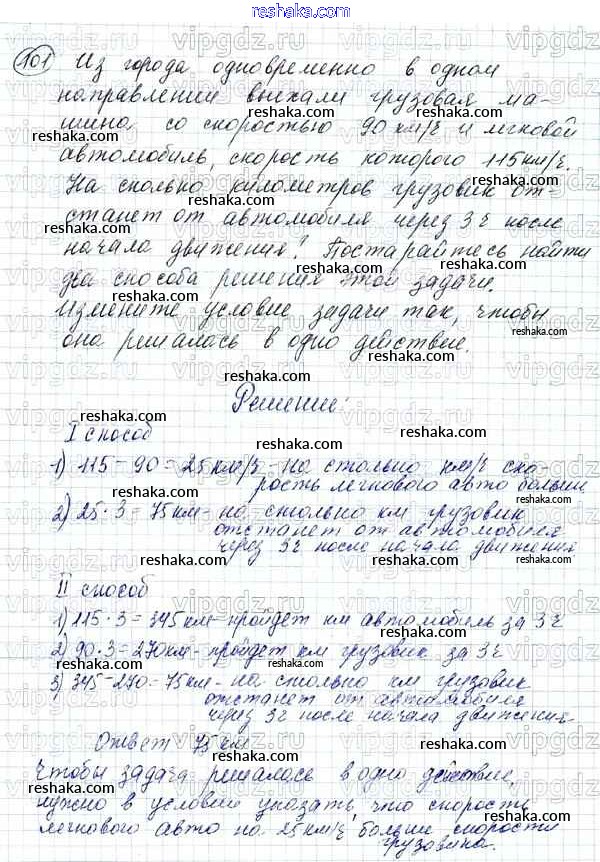 reshaka.com
101 Из города одновременно в одном
направлении выехали грузовая ма-
шина со скоростью 90 км/ч и легковой
автомобиль, скорость которого 115 км/ч.
На сколько километров грузовик от-
станет от автомобиля через 3 ч после
начала движения? Постарайтесь найти
два способа решения этой задачи.
Измените условие задачи так, чтобы
она решалась в одно действие.
Решение:
I способ
1) 115 - 90 = 25 км/ч - на столько км/ч ско-
рость легкового авто больше
2) 25 · 3 = 75 км - на столько км грузовик
отстанет от автомобиля
через 3 ч после начала движения
II способ
1) 115 · 3 = 345 км - пройдет км автомобиль за 3 ч
2) 90 · 3 = 270 км - пройдет км грузовик за 3 ч
3) 345 - 270 = 75 км - на столько км грузовик
отстанет от автомобиля
через 3 ч после начала движения.
Ответ 75 км
Чтобы задача решалась в одно действие,
нужно в условии указать, что скорость
легкового авто на 25 км/ч больше скорости
грузовика.